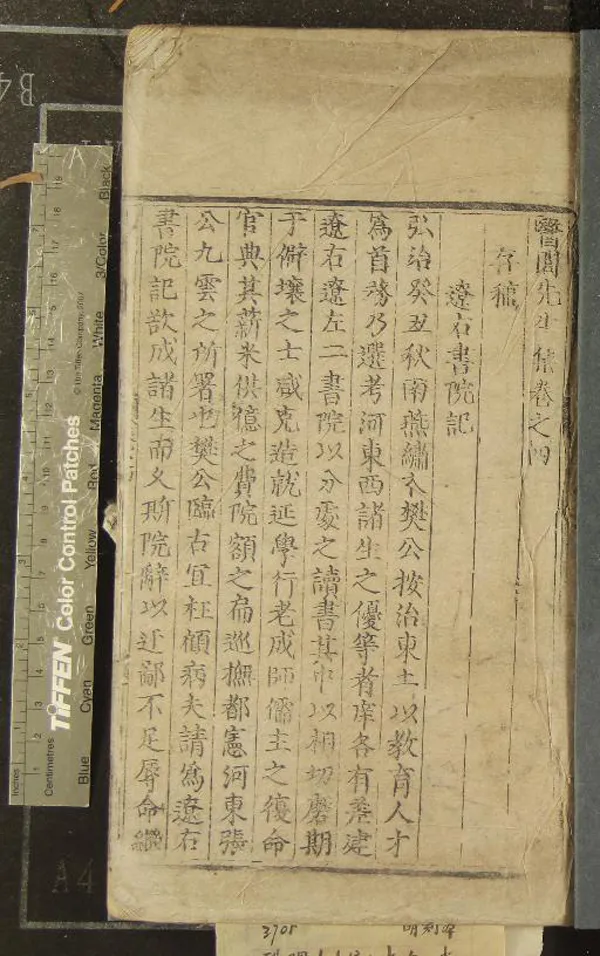 醫閭先生集卷之四
存稿
遼右書院記
弘治癸丑秋南燕繡衣樊公按治東土以教育人才
爲首務乃選考河東西諸生之優等者庠各有差建
遼右遼左二書院以分處之讀書其中以相切磨期
于僻壤之士咸克造就延學行老成師儒主之復命
官典其薪米供億之費院額之扁巡撫都憲河東張
公九雲之所署也樊公臨古宜枉顧病夫請爲遼右
書院記欲成諸生而久斯院辭以迂鄙不足辱命繼
Inches
Centimetres
TIFFEN Color Control Patches
© The Tiffen Company, 2007
Blue
Cyan
Green
Yellow
Red
Magenta
White
3/Color
Black
B4
A4
3905
明刻本